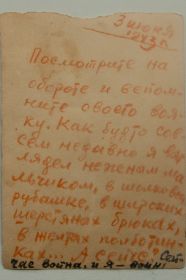 3 июня
1943 г.
Посмотрите на
обороте и вспом-
ните своего воя-
ку. Как будто сов-
сем недавно я вы-
глядел неженом ма-
льчиком, в шелковой
рубашке, в широких
шерстяных брюках,
в желтых полботин-
ках... А сейчас
час война, и я - воин!